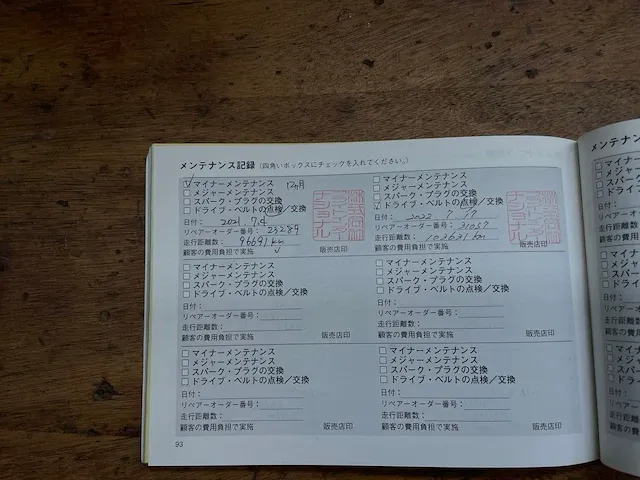 メンテナンス記録 (四角いボックスにチェックを入れてください。)
マイナーメンテナンス 12ヶ月
メジャーメンテナンス
スパーク・プラグの交換
ドライブ・ベルトの点検/交換
日付: 2021. 7.4
リペアーオーダー番号: 23289
走行距離数: 96691 km
顧客の費用負担で実施
マイナーメンテナンス
メジャーメンテナンス
スパーク・プラグの交換
ドライブ・ベルトの点検/交換
日付: 2022 7 17
リペアーオーダー番号: 31057
走行距離数: 103631 km
顧客の費用負担で実施 販売店印
マイナーメンテナンス
メジャーメンテナンス
スパーク・プラグの交換
ドライブ・ベルトの点検/交換
日付:
リペアーオーダー番号:
走行距離数:
顧客の費用負担で実施 販売店印
マイナーメンテナンス
メジャーメンテナンス
スパーク・プラグの交換
ドライブ・ベルトの点検/交換
日付:
リペアーオーダー番号:
走行距離数:
顧客の費用負担で実施 販売店印
マイナーメンテナンス
メジャーメンテナンス
スパーク・プラグの交換
ドライブ・ベルトの点検/交換
日付:
リペアーオーダー番号:
走行距離数:
顧客の費用負担で実施 販売店印
マイナーメンテナンス
メジャーメンテナンス
スパーク・プラグの交換
ドライブ・ベルトの点検/交換
日付:
リペアーオーダー番号:
走行距離数:
顧客の費用負担で実施 販売店印
93
メンテナンス記